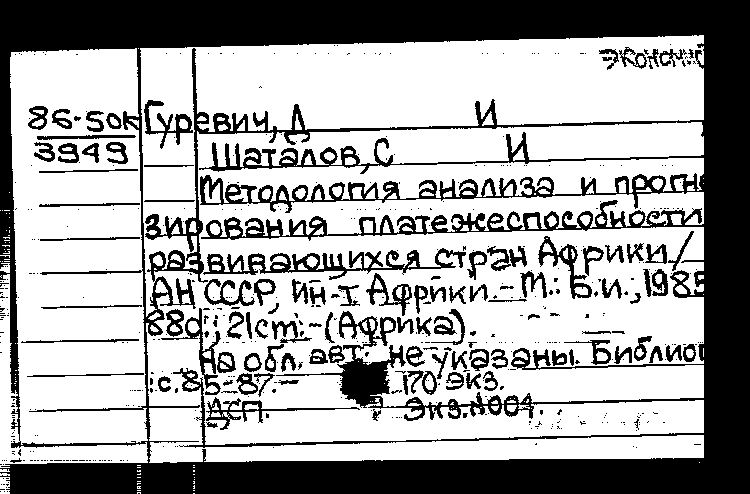 экономи
86-50к Гуревич, Д И
3949 Шаталов, С И
Методология анализа и прогно
зирования платежеспособности
развивающихся стран Африки /
АН СССР, Ин-т Африки.-М.: Б.и., 1985
88с.; 21cm.-(Африка).
На обл. авт. не указаны. Библиог
:с.85-87.- 170 экз.
ДСП. Экз.№004.